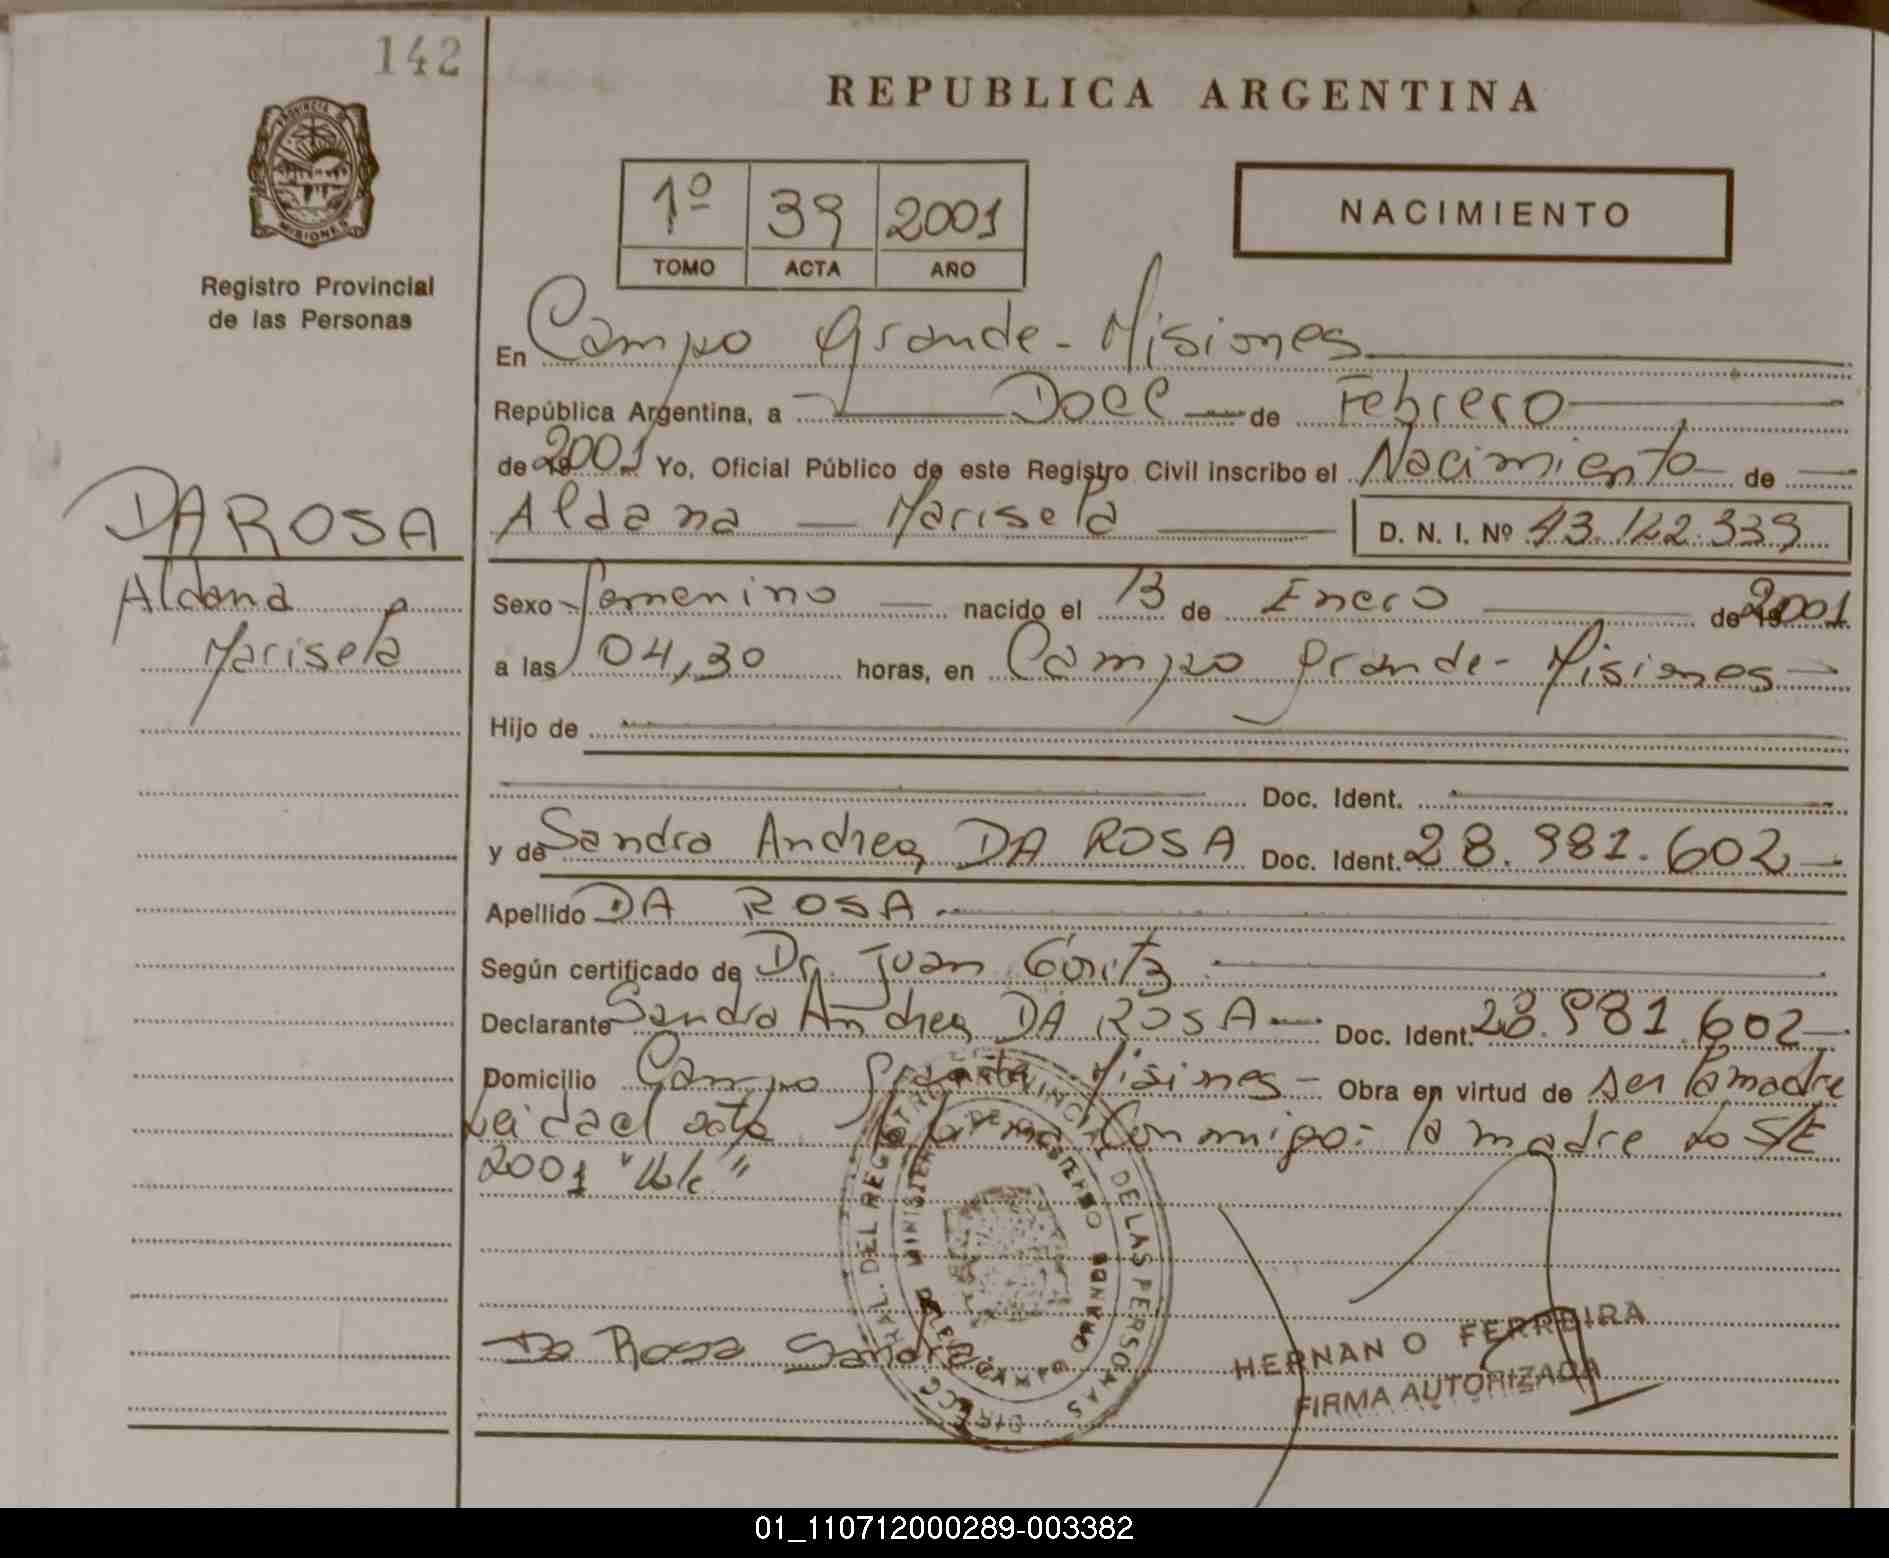 142
REPUBLICA ARGENTINA
PROVINCIA DE MISIONES
Registro Provincial
de las Personas
1º 39 2001
TOMO ACTA AÑO
NACIMIENTO
En Campo Grande - Misiones
República Argentina, a Doce de Febrero
de 2001 Yo, Oficial Público de este Registro Civil inscribo el Nacimiento de
Aldana Marisela D. N. I. Nº 43.122.339
DA ROSA
Aldana
Marisela
Sexo Femenino nacido el 13 de Enero de 2001
a las 04,30 horas, en Campo Grande - Misiones
Hijo de
Doc. Ident.
y de Sandra Andrea DA ROSA Doc. Ident. 28.981.602
Apellido DA ROSA
Según certificado de Dr. Juan Goritz
Declarante Sandra Andrea DA ROSA Doc. Ident. 28.981.602
Domicilio Campo Grande - Misiones - Obra en virtud de ser la madre
Leida el acta Conmigo: la madre Lo S/E
2001 "Vale"
Da Rosa Sandra
HERNAN O FERREIRA
FIRMA AUTORIZADA
01_110712000289-003382